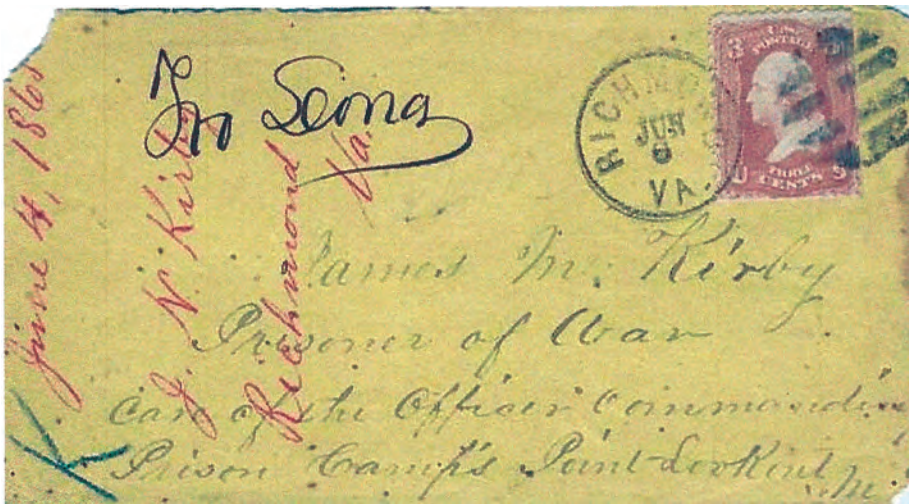 June 4, 1865
J. N. Kirby
Richmond
Va.
RICHMOND
JUN
6
VA.
U.S. POSTAGE
3
THREE
CENTS
U S
James M. Kirby
Prisoner of War
Care of the Officer Commandin
Prison Camp's Point-Lookout, M
K